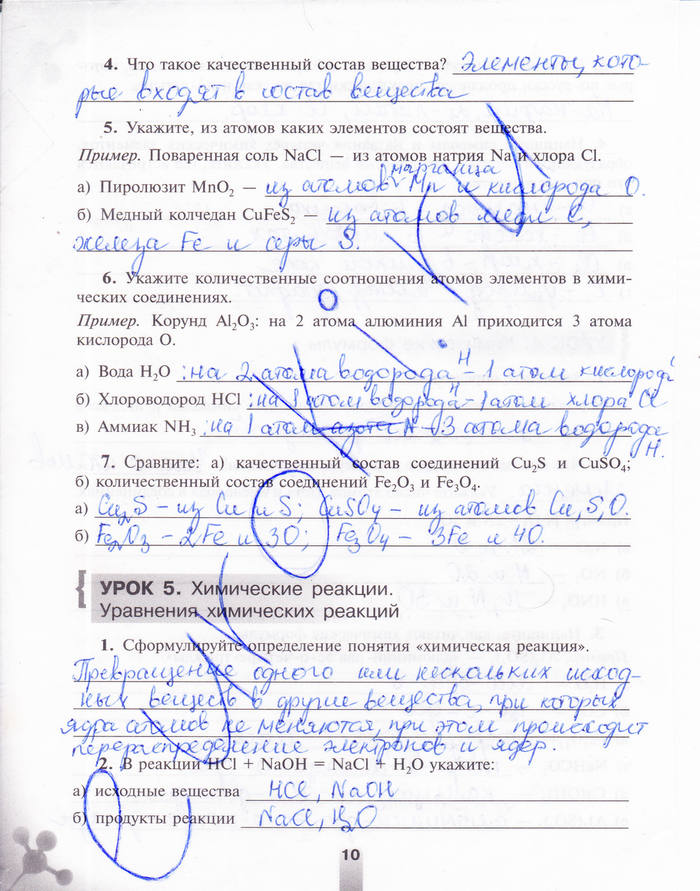 4. Что такое качественный состав вещества? Элементы, кото-
рые входят в состав вещества
5. Укажите, из атомов каких элементов состоят вещества.
Пример. Поваренная соль NaCl — из атомов натрия Na и хлора Cl.
марганца
а) Пиролюзит MnO₂ — из атомов Mn и кислорода O.
б) Медный колчедан CuFeS₂ — из атомов меди C,
железа Fe и серы S.
6. Укажите количественные соотношения атомов элементов в хими-
ческих соединениях.
Пример. Корунд Al₂O₃: на 2 атома алюминия Al приходится 3 атома
кислорода O.
а) Вода H₂O : на 2 атома водорода H – 1 атом кислорода
б) Хлороводород HCl : на 1 атом водорода H – 1 атом хлора Cl
в) Аммиак NH₃ : на 1 атом азота N – 3 атома водорода
H.
7. Сравните: а) качественный состав соединений Cu₂S и CuSO₄;
б) количественный состав соединений Fe₂O₃ и Fe₃O₄.
а) Cu₂S – из Cu и S; CuSO₄ – из атомов Cu, S, O.
б) Fe₂O₃ – 2Fe и 3O; Fe₃O₄ – 3Fe и 4O.
УРОК 5. Химические реакции.
Уравнения химических реакций
1. Сформулируйте определение понятия «химическая реакция».
Превращение одного или нескольких исход-
ных веществ в другие вещества, при которых
ядра атомов не меняются, при этом происходит
перераспределение электронов и ядер.
2. В реакции HCl + NaOH = NaCl + H₂O укажите:
а) исходные вещества HCl, NaOH
б) продукты реакции NaCl, H₂O
10